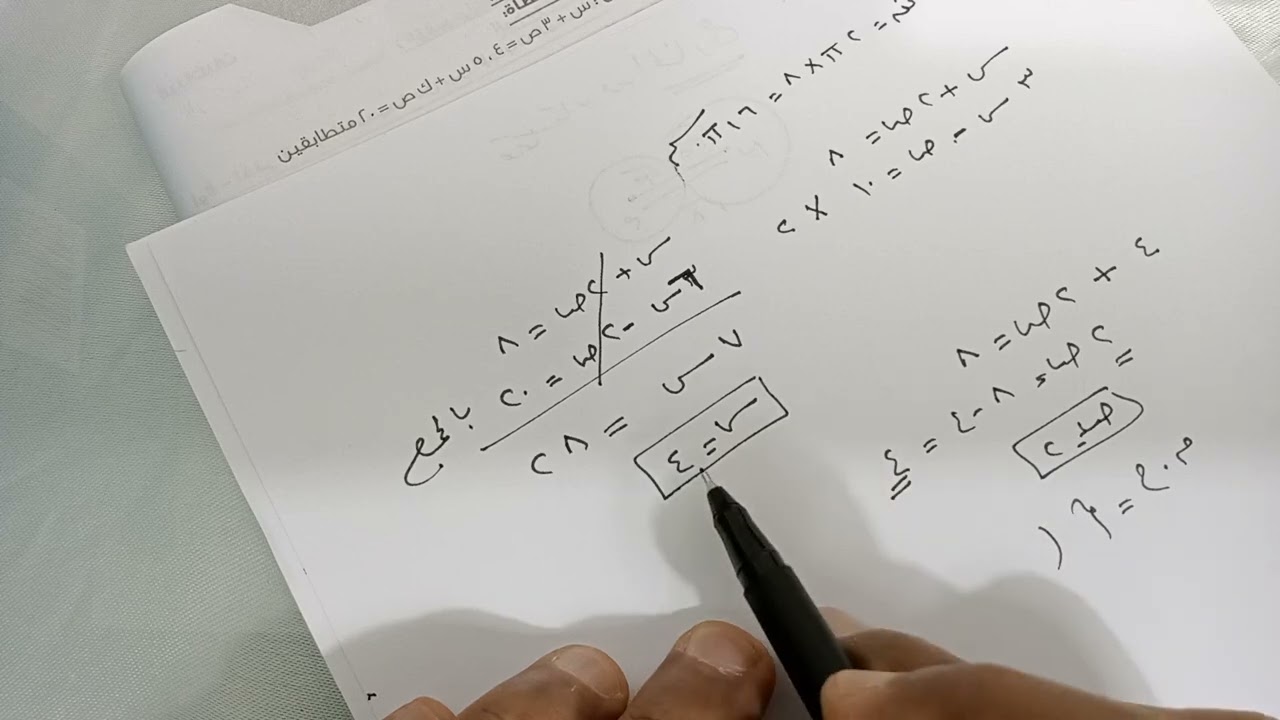 س + ٣ص = ٤ ، ٥س + ك ص = ٢٠ متطابقين
= ٢ π × ٨ = ١٦ π
س + ٢ص = ٨
٣س - ص = ١٠ × ٢
س + ٢ص = ٨
س - ٢ص = ٢٠ بالجمع
٧س = ٢٨
س = ٤
٤ + ٢ص = ٨
٢ص = ٨ - ٤ = ٤
ص = ٢
م.ح = {(